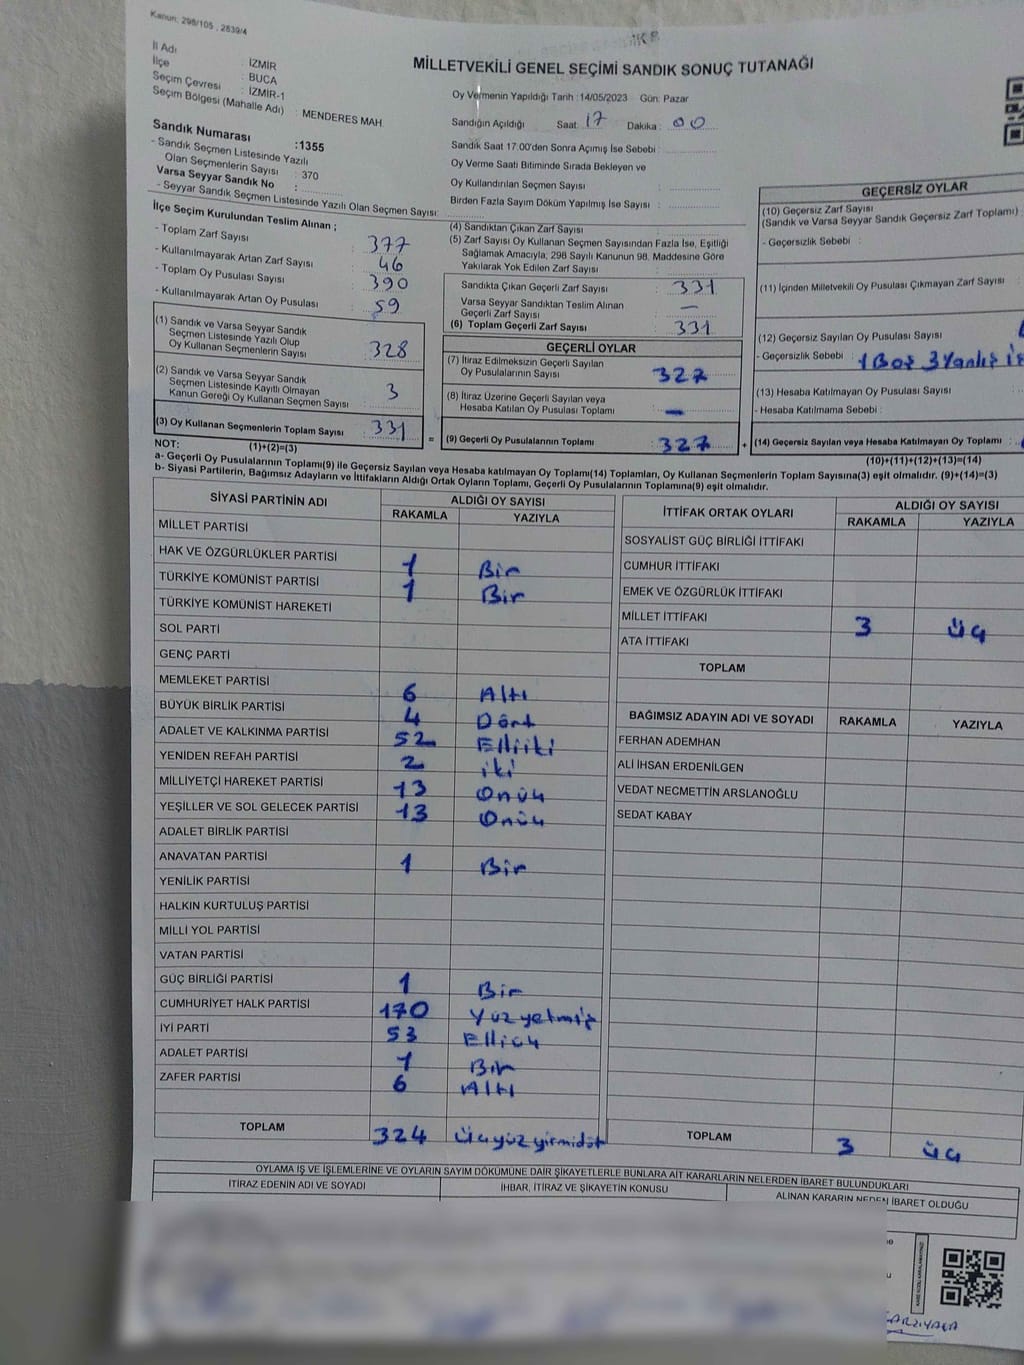 Kanun: 298/105 , 2839/4
İl Adı : İZMİR
İlçe : BUCA
Seçim Çevresi : İZMİR-1
Seçim Bölgesi (Mahalle Adı) : MENDERES MAH.
MİLLETVEKİLİ GENEL SEÇİMİ SANDIK SONUÇ TUTANAĞI
Oy Vermenin Yapıldığı Tarih :14/05/2023 Gün: Pazar
Sandığın Açıldığı Saat: 17 Dakika : 00
Sandık Saat 17:00'den Sonra Açımış İse Sebebi :
Oy Verme Saati Bitiminde Sırada Bekleyen ve
Oy Kullandırılan Seçmen Sayısı :
Birden Fazla Sayım Döküm Yapılmış İse Sayısı :
Sandık Numarası :1355
- Sandık Seçmen Listesinde Yazılı
Olan Seçmenlerin Sayısı : 370
Varsa Seyyar Sandık No :
- Seyyar Sandık Seçmen Listesinde Yazılı Olan Seçmen Sayısı:
İlçe Seçim Kurulundan Teslim Alınan ;
- Toplam Zarf Sayısı : 377
- Kullanılmayarak Artan Zarf Sayısı : 46
- Toplam Oy Pusulası Sayısı : 390
- Kullanılmayarak Artan Oy Pusulası : 59
(1) Sandık ve Varsa Seyyar Sandık
Seçmen Listesinde Yazılı Olup
Oy Kullanan Seçmenlerin Sayısı : 328
(2) Sandık ve Varsa Seyyar Sandık
Seçmen Listesinde Kayıtlı Olmayan
Kanun Gereği Oy Kullanan Seçmen Sayısı : 3
(3) Oy Kullanan Seçmenlerin Toplam Sayısı : 331
(4) Sandıktan Çıkan Zarf Sayısı :
(5) Zarf Sayısı Oy Kullanan Seçmen Sayısından Fazla İse, Eşitliği
Sağlamak Amacıyla, 298 Sayılı Kanunun 98. Maddesine Göre
Yakılarak Yok Edilen Zarf Sayısı :
Sandıkta Çıkan Geçerli Zarf Sayısı : 331
Varsa Seyyar Sandıktan Teslim Alınan
Geçerli Zarf Sayısı : —
(6) Toplam Geçerli Zarf Sayısı : 331
GEÇERLİ OYLAR
(7) İtiraz Edilmeksizin Geçerli Sayılan
Oy Pusulalarının Sayısı : 327
(8) İtiraz Üzerine Geçerli Sayılan veya
Hesaba Katılan Oy Pusulası Toplamı : —
= (9) Geçerli Oy Pusulalarının Toplamı : 327 +
GEÇERSİZ OYLAR
(10) Geçersiz Zarf Sayısı
(Sandık ve Varsa Seyyar Sandık Geçersiz Zarf Toplamı) :
- Geçersizlik Sebebi :
(11) İçinden Milletvekili Oy Pusulası Çıkmayan Zarf Sayısı :
(12) Geçersiz Sayılan Oy Pusulası Sayısı :
- Geçersizlik Sebebi : 1 Boş 3 Yanlış
(13) Hesaba Katılmayan Oy Pusulası Sayısı :
- Hesaba Katılmama Sebebi :
(14) Geçersiz Sayılan veya Hesaba Katılmayan Oy Toplamı :
NOT: (1)+(2)=(3)
(10)+(11)+(12)+(13)=(14)
a- Geçerli Oy Pusulalarının Toplamı(9) ile Geçersiz Sayılan veya Hesaba katılmayan Oy Toplamı(14) Toplamları, Oy Kullanan Seçmenlerin Toplam Sayısına(3) eşit olmalıdır. (9)+(14)=(3)
b- Siyasi Partilerin, Bağımsız Adayların ve İttifakların Aldığı Ortak Oyların Toplamı, Geçerli Oy Pusulalarının Toplamına(9) eşit olmalıdır.
SİYASİ PARTİNİN ADI ALDIĞI OY SAYISI
RAKAMLA YAZIYLA
MİLLET PARTİSİ
HAK VE ÖZGÜRLÜKLER PARTİSİ 1 Bir
TÜRKİYE KOMÜNİST PARTİSİ 1 Bir
TÜRKİYE KOMÜNİST HAREKETİ
SOL PARTİ
GENÇ PARTİ
MEMLEKET PARTİSİ 6 Altı
BÜYÜK BİRLİK PARTİSİ 4 Dört
ADALET VE KALKINMA PARTİSİ 52 Elliiki
YENİDEN REFAH PARTİSİ 2 iki
MİLLİYETÇİ HAREKET PARTİSİ 13 Onüç
YEŞİLLER VE SOL GELECEK PARTİSİ 13 Onüç
ADALET BİRLİK PARTİSİ
ANAVATAN PARTİSİ 1 Bir
YENİLİK PARTİSİ
HALKIN KURTULUŞ PARTİSİ
MİLLİ YOL PARTİSİ
VATAN PARTİSİ
GÜÇ BİRLİĞİ PARTİSİ 1 Bir
CUMHURİYET HALK PARTİSİ 170 Yüzyetmiş
İYİ PARTİ 53 Elliüç
ADALET PARTİSİ 1 Bir
ZAFER PARTİSİ 6 Altı
TOPLAM 324 Üçyüzyirmidört
İTTİFAK ORTAK OYLARI ALDIĞI OY SAYISI
RAKAMLA YAZIYLA
SOSYALİST GÜÇ BİRLİĞİ İTTİFAKI
CUMHUR İTTİFAKI
EMEK VE ÖZGÜRLÜK İTTİFAKI
MİLLET İTTİFAKI 3 üç
ATA İTTİFAKI
TOPLAM
BAĞIMSIZ ADAYIN ADI VE SOYADI RAKAMLA YAZIYLA
FERHAN ADEMHAN
ALİ İHSAN ERDENİLGEN
VEDAT NECMETTİN ARSLANOĞLU
SEDAT KABAY
TOPLAM 3 üç
OYLAMA İŞ VE İŞLEMLERİNE VE OYLARIN SAYIM DÖKÜMÜNE DAİR ŞİKAYETLERLE BUNLARA AİT KARARLARIN NELERDEN İBARET BULUNDUKLARI
İTİRAZ EDENİN ADI VE SOYADI İHBAR, İTİRAZ VE ŞİKAYETİN KONUSU ALINAN KARARIN NEDEN İBARET OLDUĞU